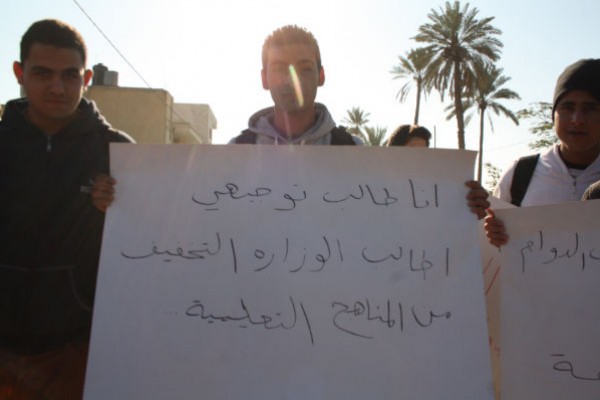 انا طالب توجيهي
اطالب الوزاره التخفيف
من المناهج التعليمية...
الدوام